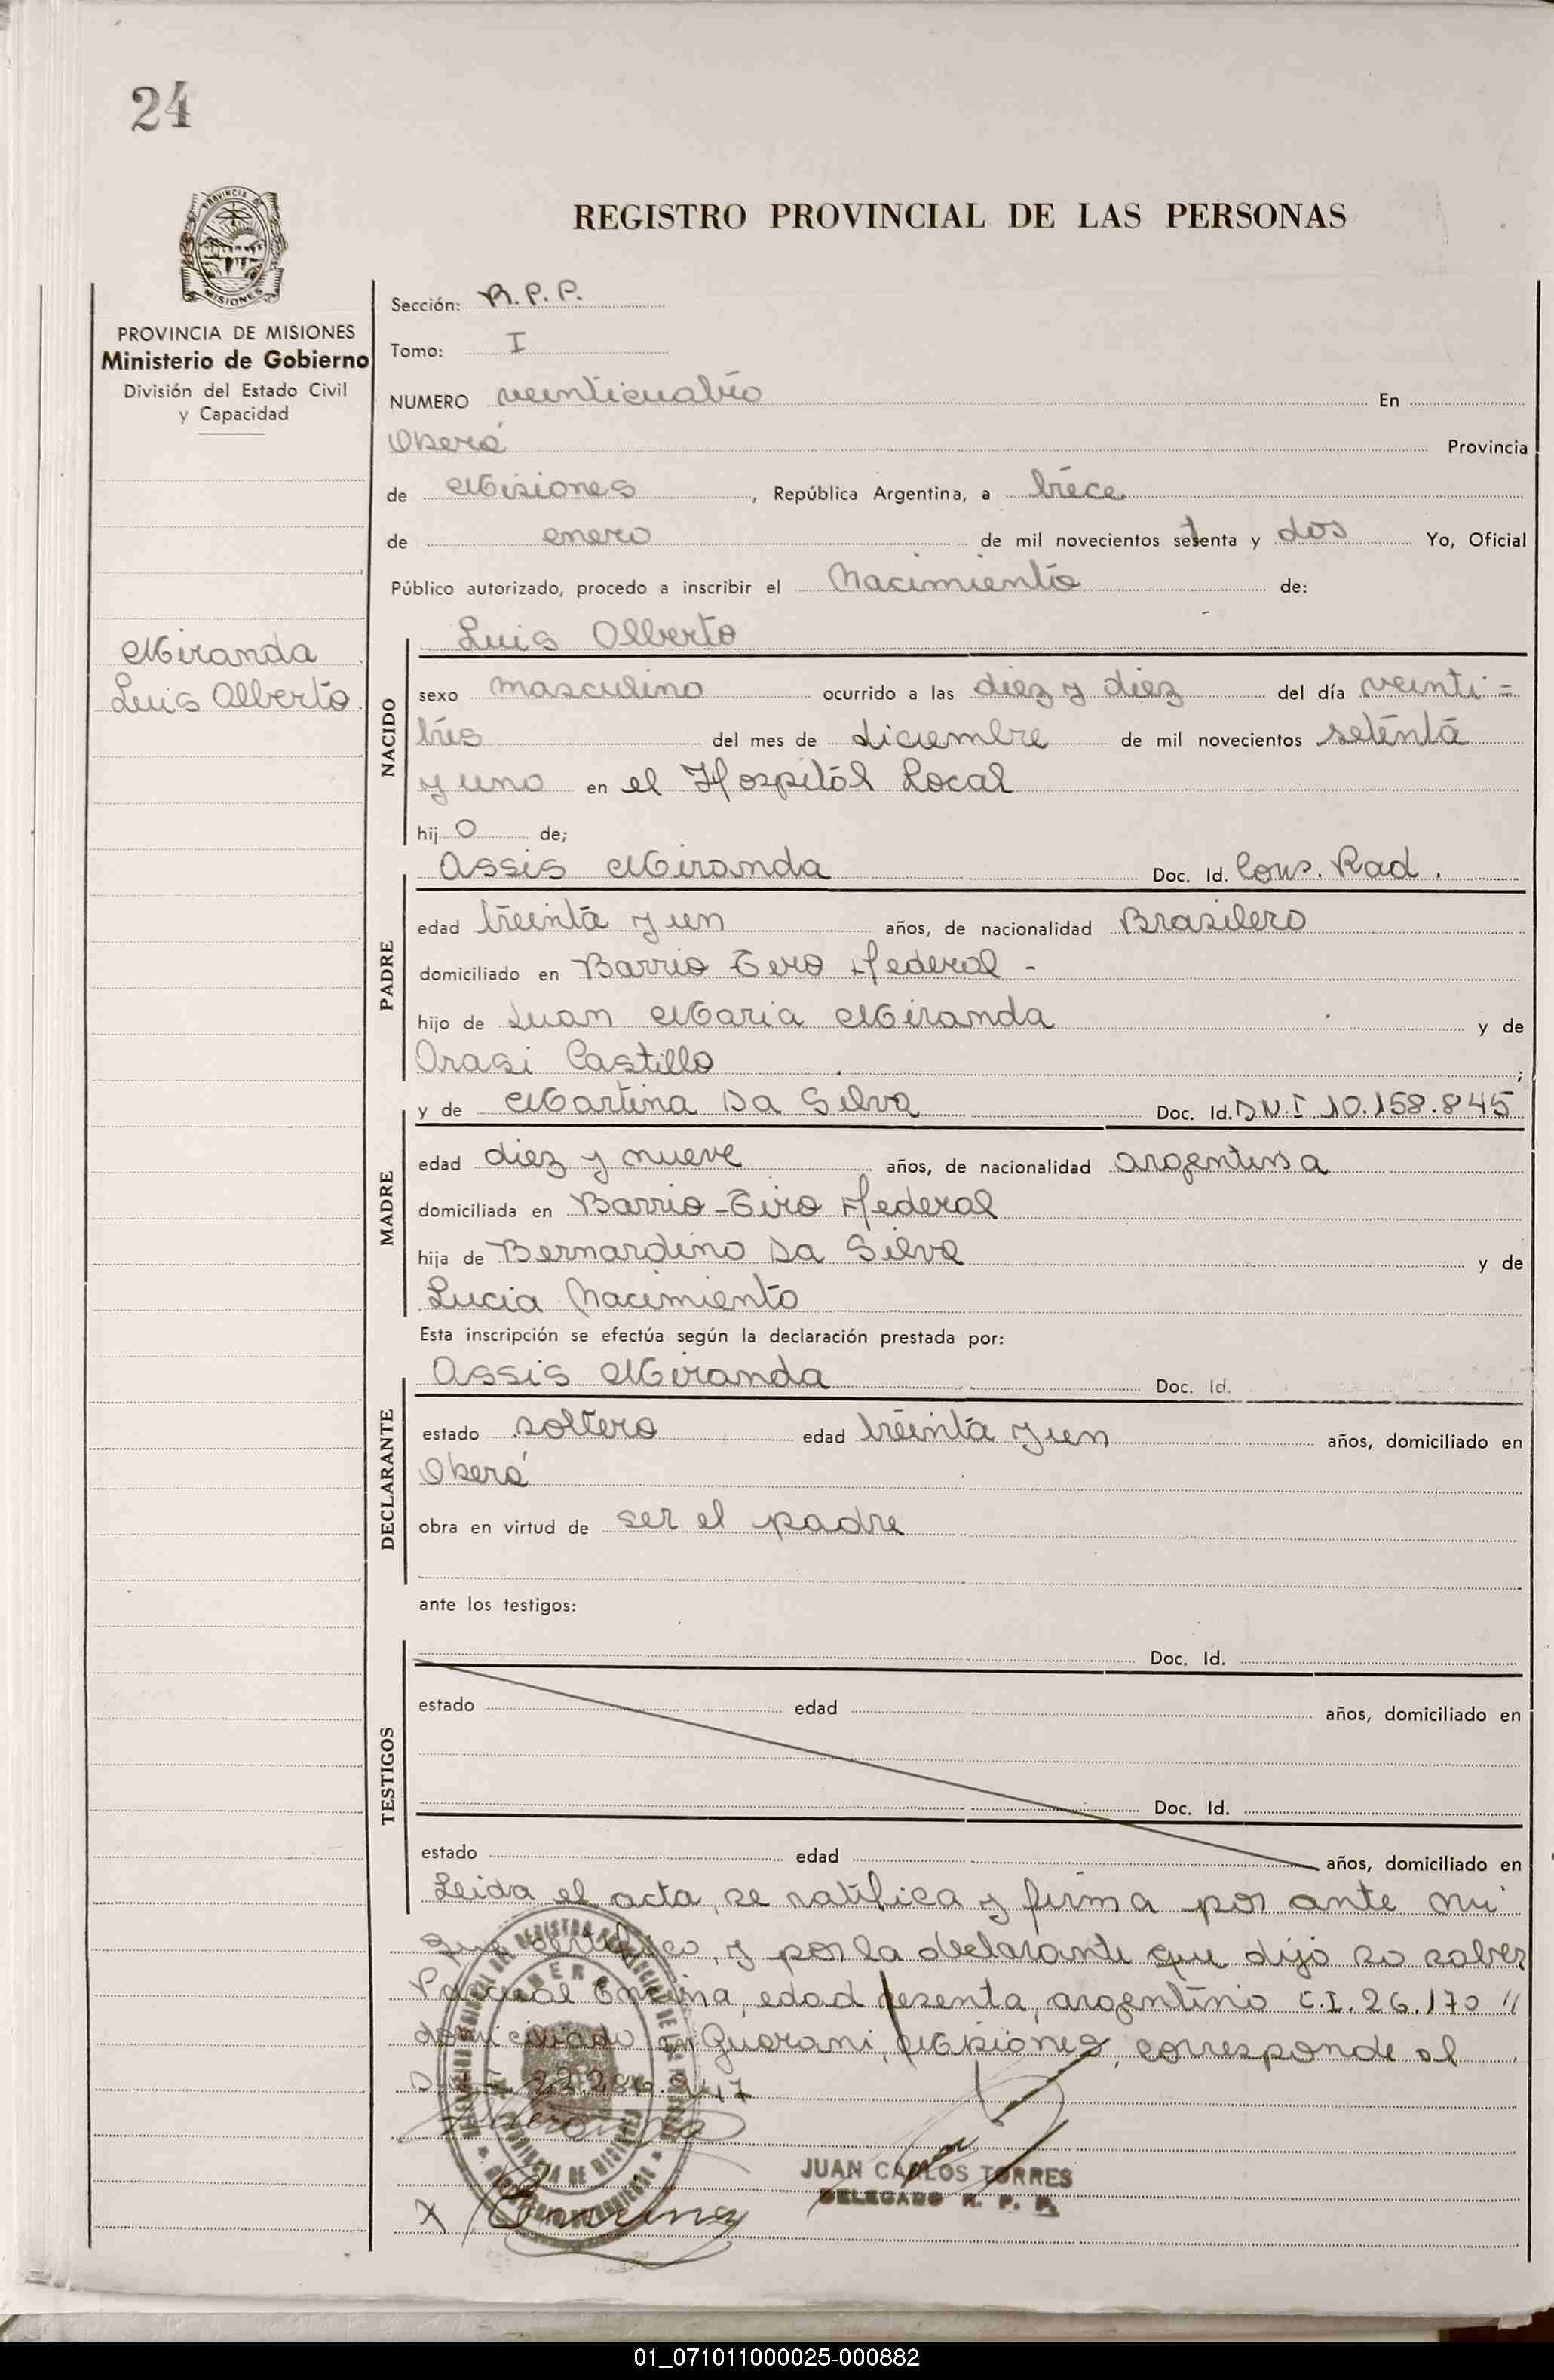 24
PROVINCIA DE
MISIONES
REGISTRO PROVINCIAL DE LAS PERSONAS
PROVINCIA DE MISIONES
Ministerio de Gobierno
División del Estado Civil
y Capacidad
Miranda
Luis Alberto
Sección: R.P.P.
Tomo: I
NUMERO veinticuatro En
Oberá Provincia
de Misiones, República Argentina, a trece
de enero de mil novecientos setenta y dos Yo, Oficial
Público autorizado, procedo a inscribir el Nacimiento de:
NACIDO
Luis Alberto
sexo masculino ocurrido a las diez y diez del día veinti=
trés del mes de diciembre de mil novecientos setenta
y uno en el Hospital Local
hijo de;
PADRE
Assis Miranda Doc. Id. Cons. Rad.
edad treinta y un años, de nacionalidad Brasilero
domiciliado en Barrio Tiro Federal -
hijo de Juan Maria Miranda y de
Orasi Castillo;
MADRE
y de Martina Da Silva Doc. Id. D N.I 10.158.845
edad diez y nueve años, de nacionalidad argentina
domiciliada en Barrio - Tiro Federal
hija de Bernardino Da Silva y de
Lucia Nacimiento
Esta inscripción se efectúa según la declaración prestada por:
DECLARANTE
Assis Miranda Doc. Id.
estado soltero edad treinta y un años, domiciliado en
Oberá
obra en virtud de ser el padre
ante los testigos:
TESTIGOS
Doc. Id.
estado edad años, domiciliado en
Doc. Id.
estado edad años, domiciliado en
Leida el acta, se ratifica y firma por ante mi
que certifico, y por la declarante que dijo no saber
Pascual Encina, edad sesenta, argentino C.I. 26.170 "
domiciliado en Guarani, Misiones, corresponde al
JUAN CARLOS TORRES
DELEGADO R. P. P.
X Encina
01_071011000025-000882